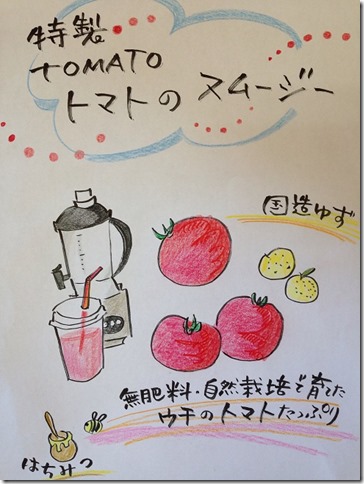 特製
TOMATO
トマトの スムージー
国造ゆず
無肥料・自然栽培で育てた
ウチのトマトたっぷり
はちみつ